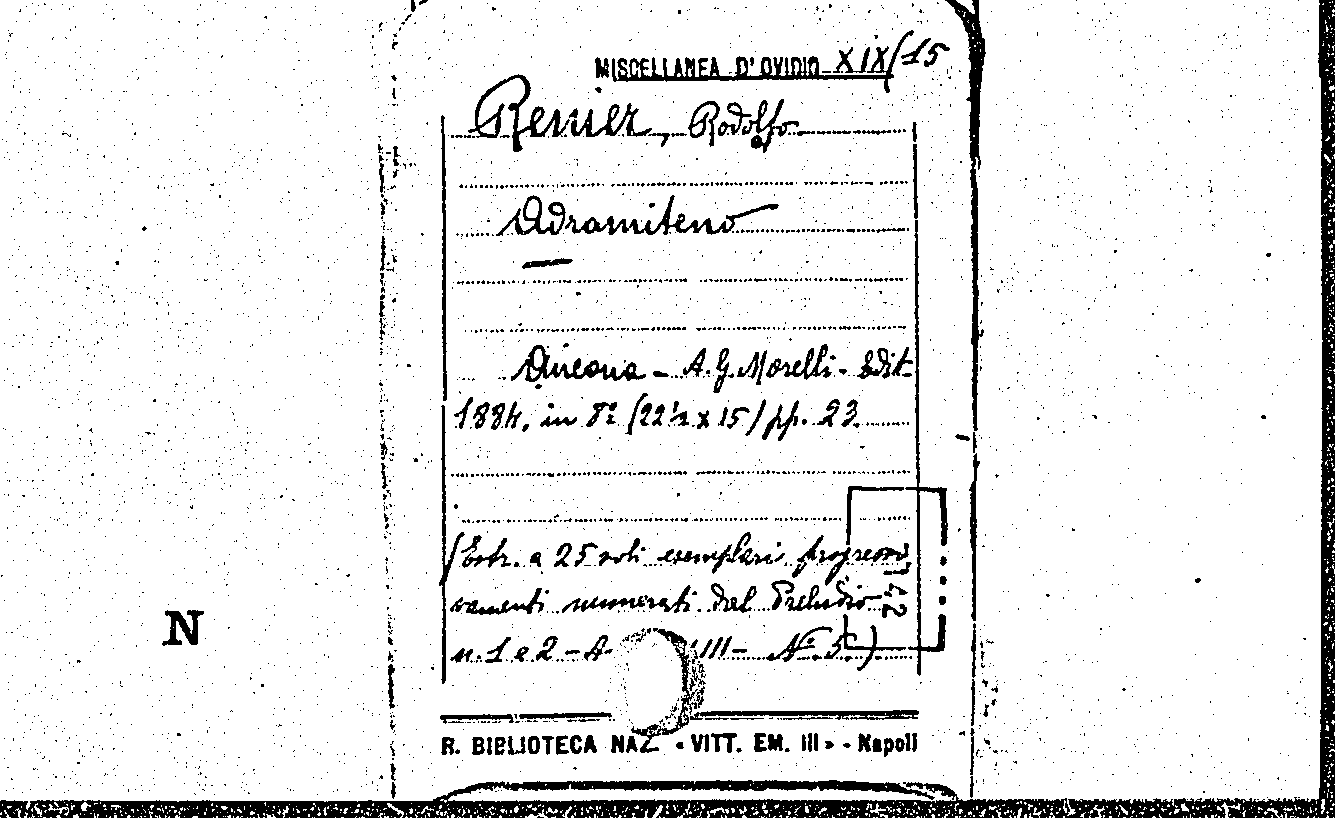 MISCELLANEA D'OVIDIO XIX/15
Renier, Rodolfo
Adramiteno
Ancona - A. G. Morelli - Edit.
1884, in 8º (22½ x 15) pp. 23.
(Estr. a 25 soli esemplari progressi
vamenti numerati dal Preludio
n. 1 e 2 - A III - Nº. 5.)
142
N
R. BIBLIOTECA NAZ. «VITT. EM. III» - Napoli